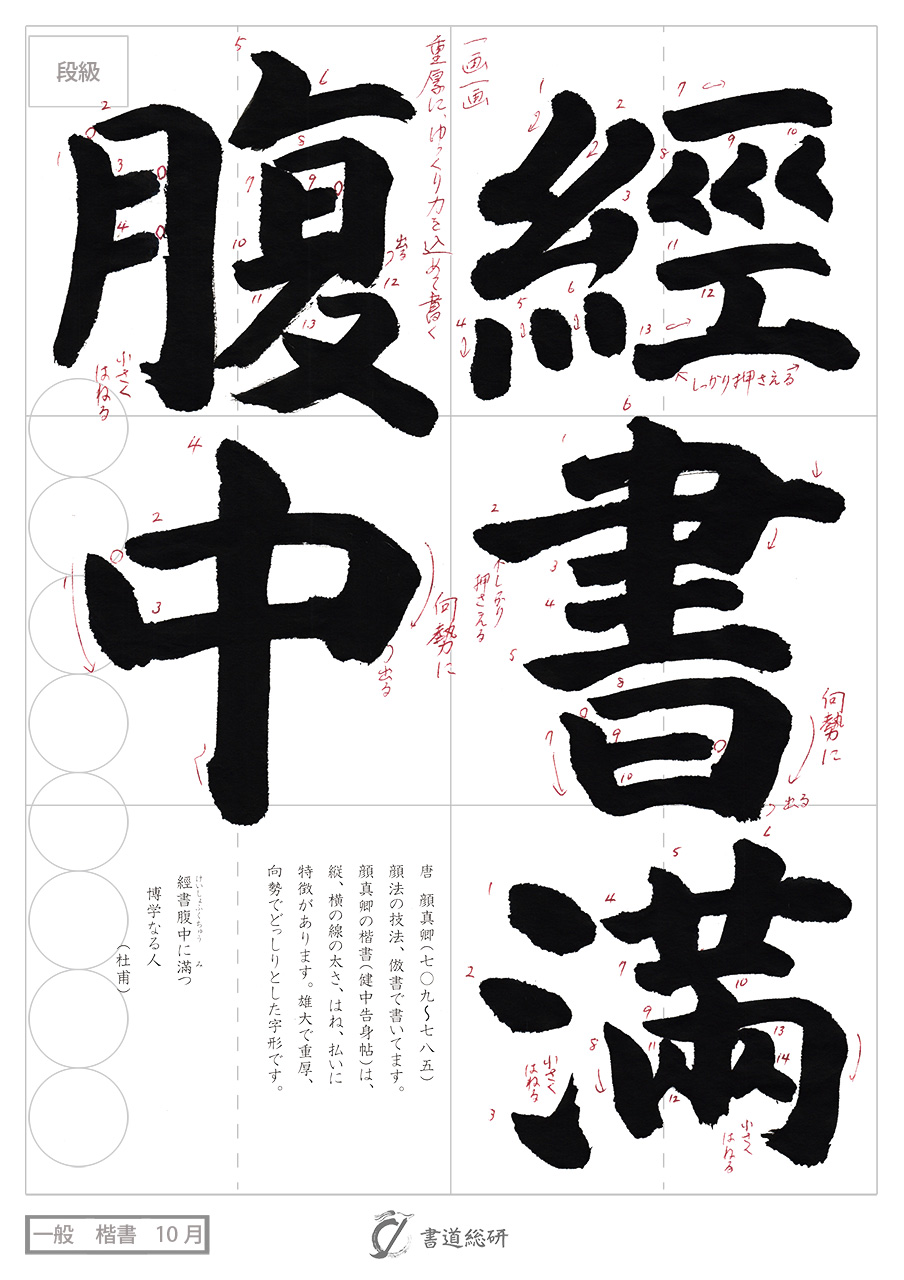 段級
經書滿
腹中
一画一画
重厚に、ゆっくり力を込めて書く
しっかり押さえる
出る
小さくはねる
しっかり押さえる
向勢に
出る
向勢に
出る
小さくはねる
小さくはねる
唐 顔真卿(七〇九〜七八五)
顔法の技法、倣書で書いてます。
顔真卿の楷書(健中告身帖)は、
縦、横の線の太さ、はね、払いに
特徴があります。雄大で重厚、
向勢でどっしりとした字形です。
經書腹中に滿つ
けいしょふくちゅう み
博学なる人
(杜甫)
一般 楷書 10月
書道総研